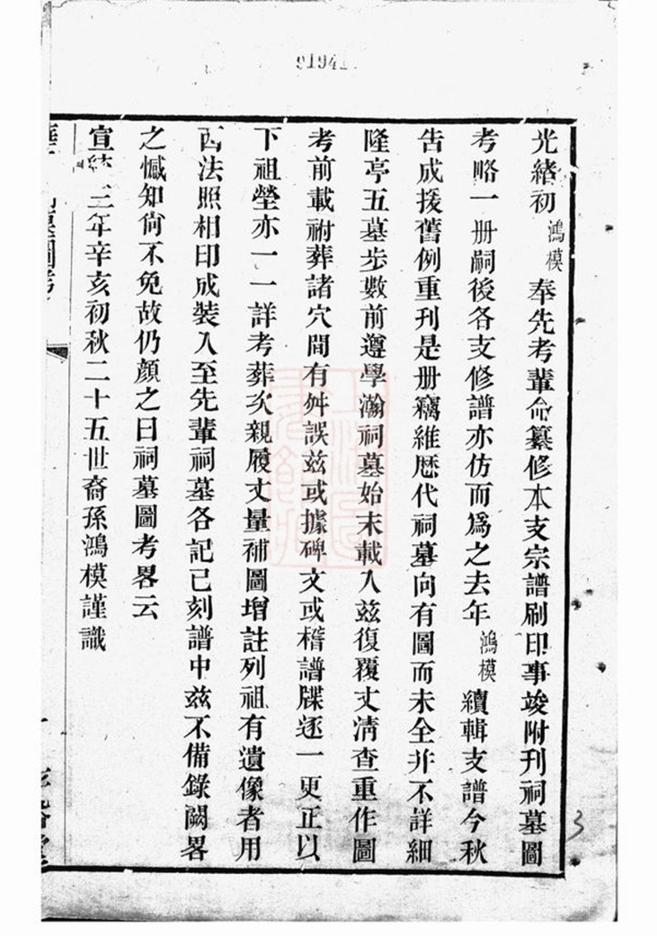 91941
光緒初鴻模奉先考輩命纂修本支宗譜刷印事竣附刊祠墓圖
考略一册嗣後各支修譜亦仿而爲之去年鴻模續輯支譜今秋
告成援舊例重刊是册竊維歴代祠墓向有圖而未全并不詳細
隆亭五墓步數前遵學瀚祠墓始末載入兹復覆丈淸查重作圖
考前載祔葬諸穴間有舛誤兹或據碑文或稽譜牒逐一更正以
下祖塋亦一一詳考葬次親履丈量補圖增註列祖有遺像者用
西法照相印成裝入至先輩祠墓各記已刻譜中兹不備錄闕畧
之憾知尙不免故仍顏之曰祠墓圖考畧云
宣統三年辛亥初秋二十五世裔孫鴻模謹識
3